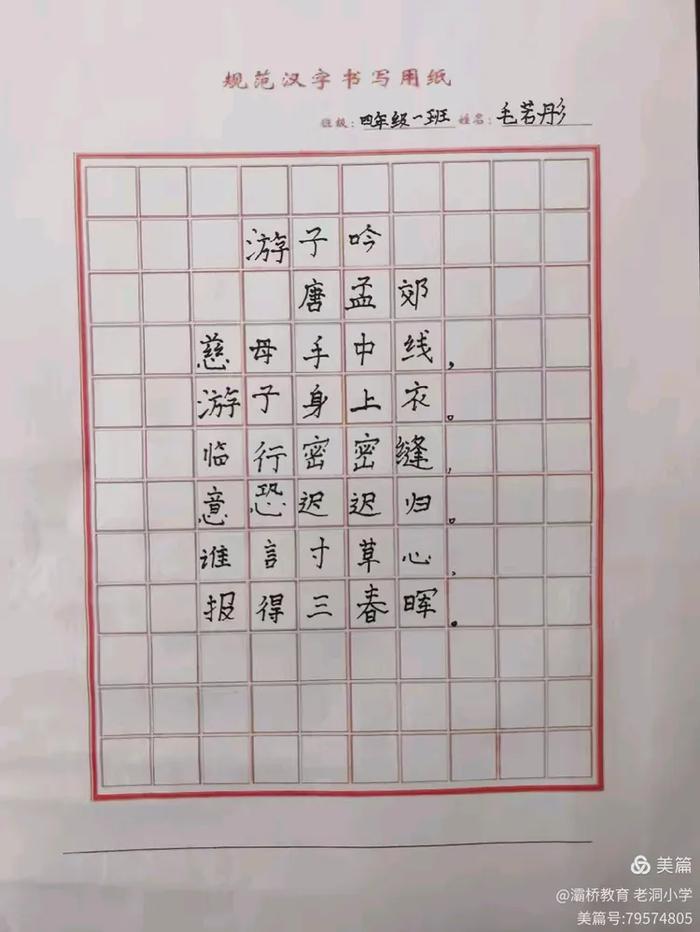 规范汉字书写用纸
班级:四年级一班 姓名:毛若彤
游子吟
唐孟郊
慈母手中线,
游子身上衣。
临行密密缝,
意恐迟迟归。
谁言寸草心,
报得三春晖。
美篇
@灞桥教育 老洞小学
美篇号:79574805